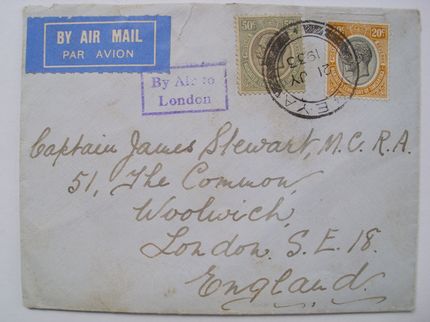 BY AIR MAIL
PAR AVION
By Air to
London
50c
50c
20c
20c
21 JY
1933
Captain James Stewart, M.C. R.A.
51, The Common,
Woolwich,
London. S.E. 18.
England.